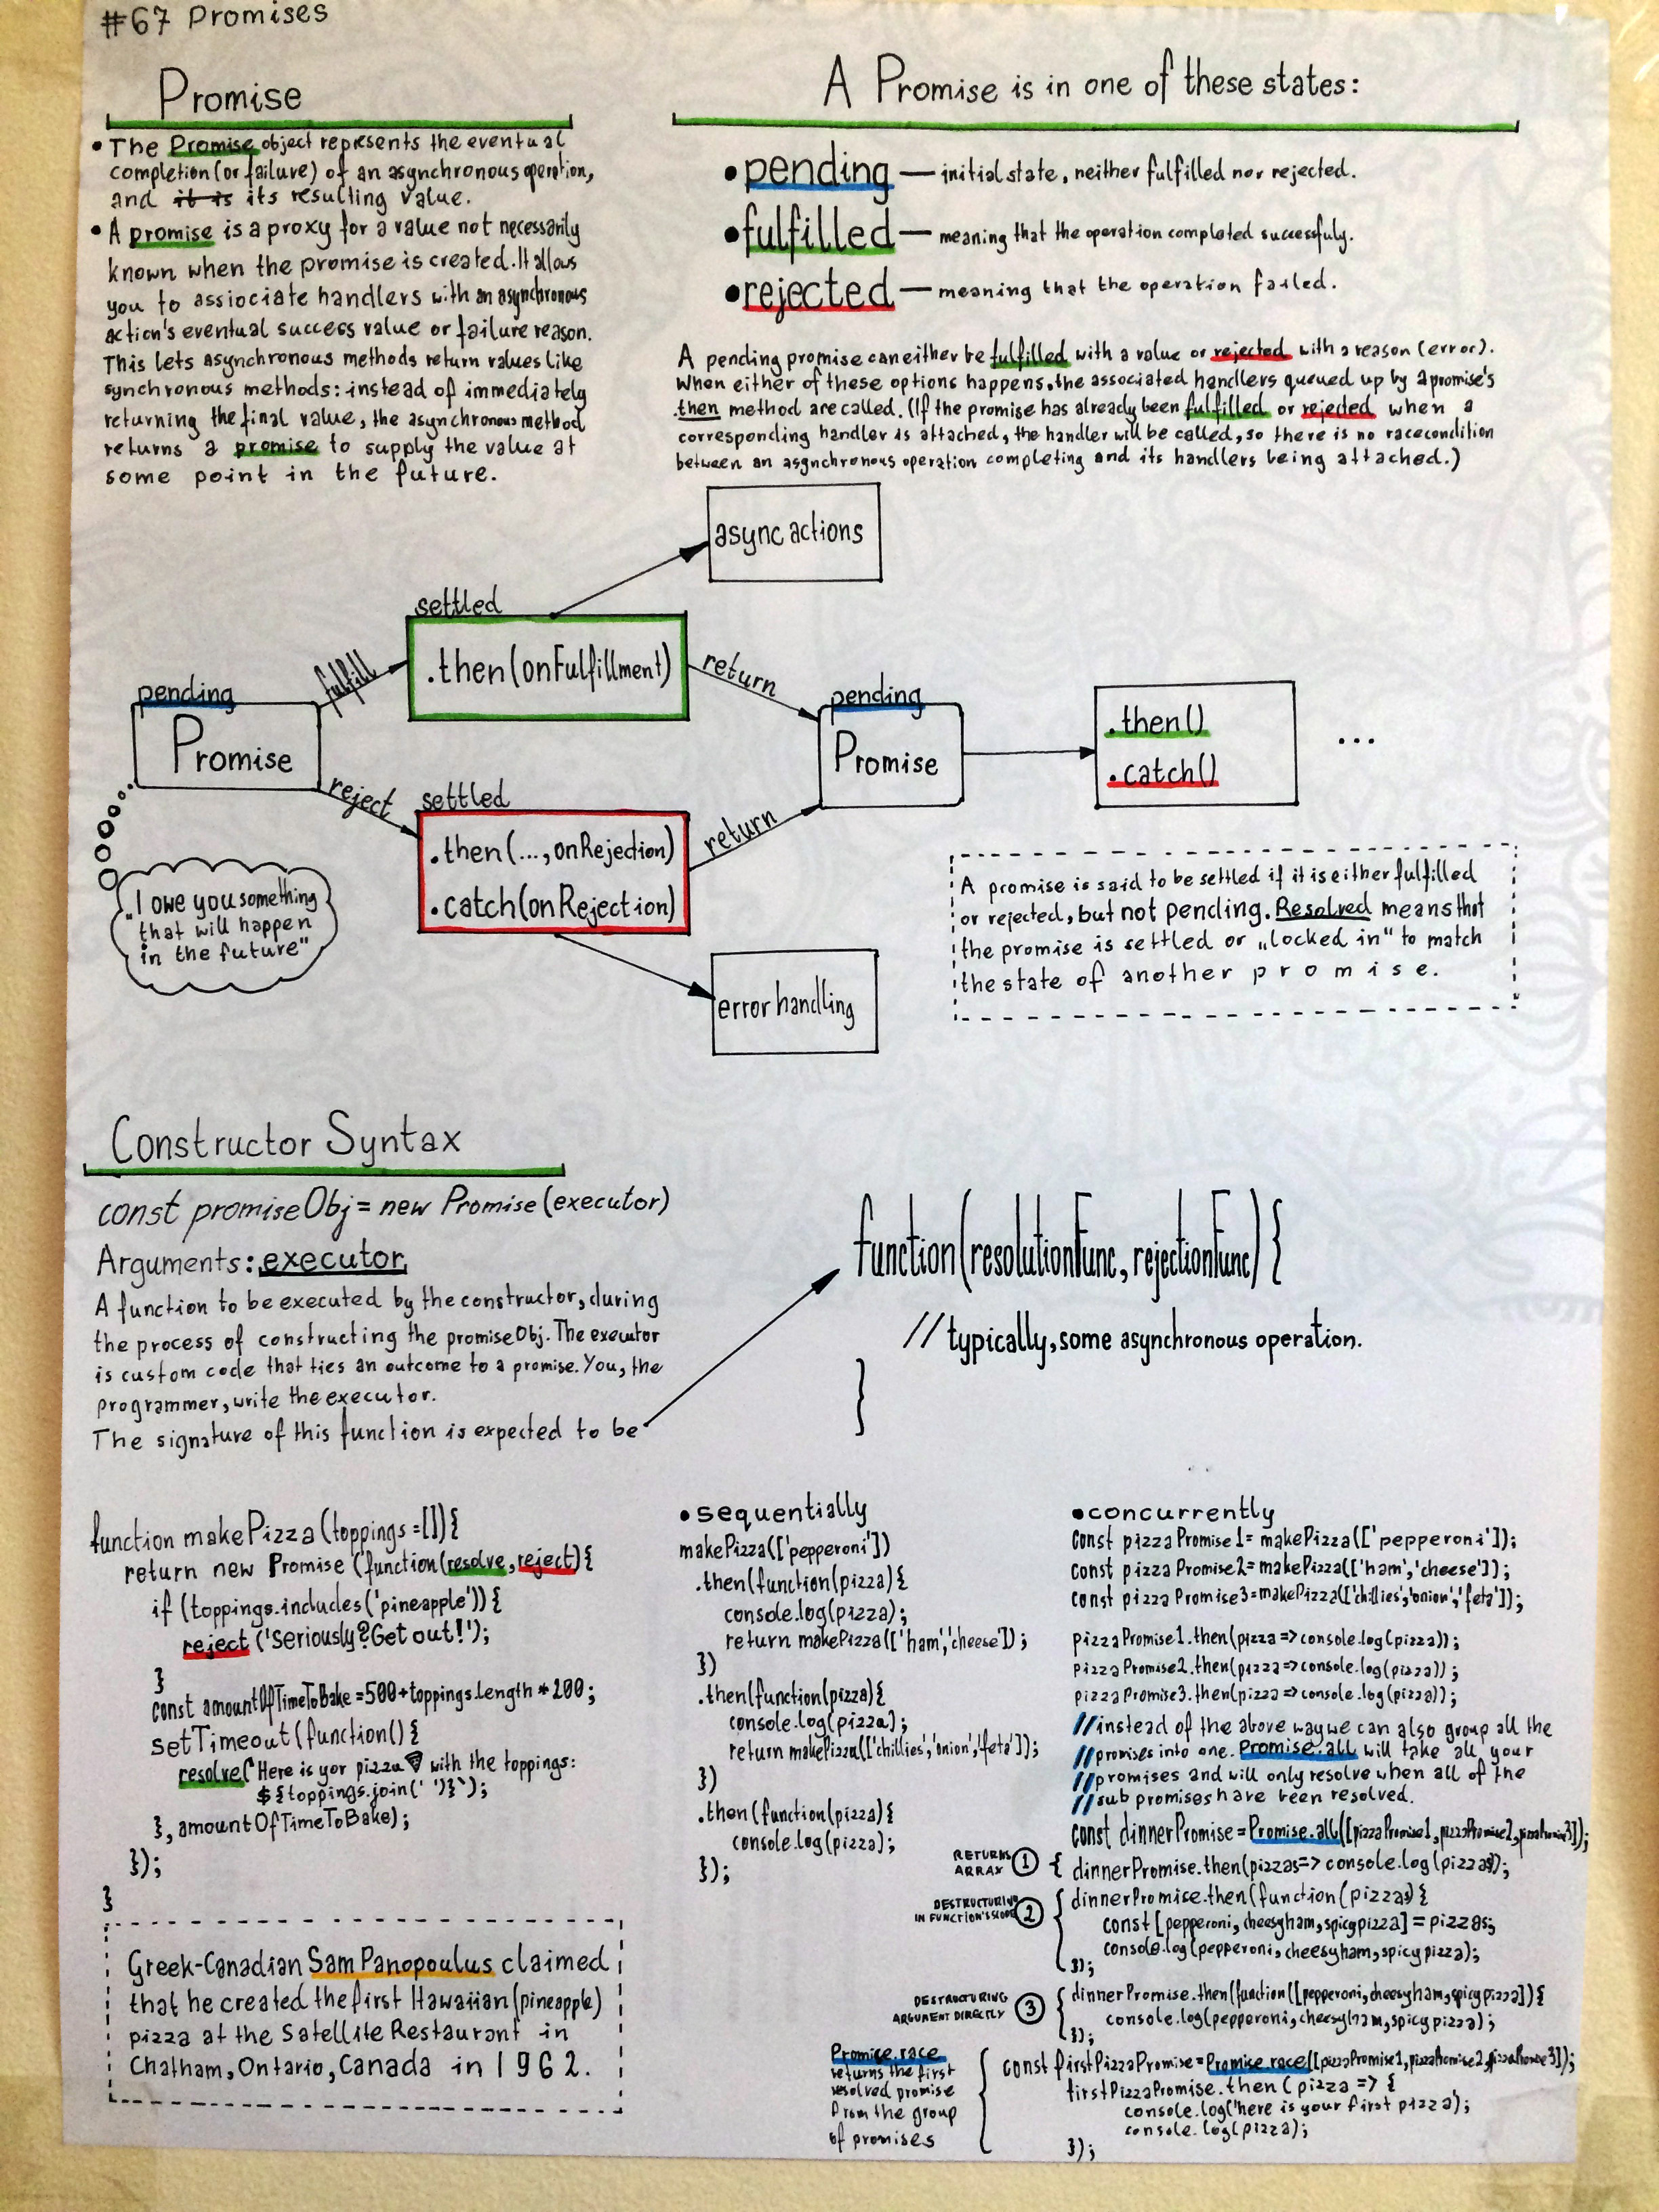 #67 Promises
Promise
• The Promise object represents the eventual
completion (or failure) of an asynchronous operation,
and it is its resulting value.
• A promise is a proxy for a value not necessarily
known when the promise is created. It allows
you to assiociate handlers with an asynchronous
action's eventual success value or failure reason.
This lets asynchronous methods return values like
synchronous methods: instead of immediately
returning the final value, the asynchronous method
returns a promise to supply the value at
some point in the future.
A Promise is in one of these states:
• pending — initial state, neither fulfilled nor rejected.
• fulfilled — meaning that the operation completed successfuly.
• rejected — meaning that the operation failed.
A pending promise can either be fulfilled with a value or rejected with a reason (error).
When either of these options happens, the associated handlers queued up by a promise's
then method are called. (If the promise has already been fulfilled or rejected when a
corresponding handler is attached, the handler will be called, so there is no racecondition
between an asynchronous operation completing and its handlers being attached.)
async actions
settled
.then(onFulfillment)
fulfill
return
pending
Promise
pending
Promise
.then()
.catch()
...
reject
settled
.then(...,onRejection)
.catch(onRejection)
return
error handling
"I owe you something
that will happen
in the future"
A promise is said to be settled if it is either fulfilled
or rejected, but not pending. Resolved means that
the promise is settled or „locked in" to match
the state of another promise.
Constructor Syntax
const promiseObj = new Promise(executor)
Arguments: executor
A function to be executed by the constructor, during
the process of constructing the promiseObj. The executor
is custom code that ties an outcome to a promise. You, the
programmer, write the executor.
The signature of this function is expected to be
function(resolutionFunc, rejectionFunc) {
// typically, some asynchronous operation.
}
function makePizza (toppings = []) {
return new Promise (function(resolve, reject) {
if (toppings.includes('pineapple')) {
reject ('Seriously? Get out!');
}
const amountOfTimeToBake = 500 + toppings.length * 200;
setTimeout (function() {
resolve(`Here is yor pizza 🍕 with the toppings:
${toppings.join(' ')}`);
}, amountOfTimeToBake);
});
}
Greek-Canadian Sam Panopoulus claimed
that he created the first Hawaiian (pineapple)
pizza at the Satellite Restaurant in
Chatham, Ontario, Canada in 1962.
• sequentially
makePizza(['pepperoni'])
.then(function(pizza) {
console.log(pizza);
return makePizza(['ham','cheese']);
})
.then(function(pizza) {
console.log(pizza);
return makePizza(['chillies','onion','feta']);
})
.then(function(pizza) {
console.log(pizza);
});
• concurrently
const pizzaPromise1 = makePizza(['pepperoni']);
const pizzaPromise2 = makePizza(['ham','cheese']);
const pizzaPromise3 = makePizza(['chillies','onion','feta']);
pizzaPromise1.then(pizza => console.log(pizza));
pizzaPromise2.then(pizza => console.log(pizza));
pizzaPromise3.then(pizza => console.log(pizza));
// instead of the above way we can also group all the
// promises into one. Promise.all will take all your
// promises and will only resolve when all of the
// sub promises have been resolved.
const dinnerPromise = Promise.all([pizzaPromise1, pizzaPromise2, pizzaPromise3]);
RETURNS
ARRAY 1 { dinnerPromise.then(pizzas => console.log(pizzas));
DESTRUCTURING
IN FUNCTION'S SCOPE 2 { dinnerPromise.then(function(pizzas) {
const [pepperoni, cheesyham, spicypizza] = pizzas;
console.log(pepperoni, cheesyham, spicypizza);
});
DESTRUCTURING
ARGUMENT DIRECTLY 3 { dinnerPromise.then(function([pepperoni, cheesyham, spicypizza]) {
console.log(pepperoni, cheesyham, spicypizza);
});
Promise.race
returns the first
resolved promise
from the group
of promises
{ const firstPizzaPromise = Promise.race([pizzaPromise1, pizzaPromise2, pizzaPromise3]);
firstPizzaPromise.then (pizza => {
console.log('here is your first pizza);
console.log(pizza);
});